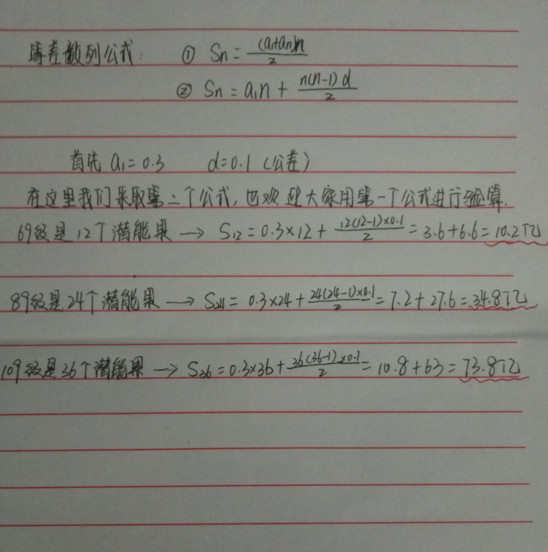 等差数列公式: ① Sn = (a₁+an)n/2
② Sn = a₁n + n(n-1)d/2
首先 a₁=0.3 d=0.1 (公差)
在这里我们采取第二个公式,也欢迎大家用第一个公式进行验算.
69级是12个潜能果 → S₁₂ = 0.3×12 + 12(12-1)×0.1/2 = 3.6+6.6 = 10.2亿
89级是24个潜能果 → S₂₄ = 0.3×24 + 24(24-1)×0.1/2 = 7.2+27.6 = 34.8亿
109级是36个潜能果 → S₃₆ = 0.3×36 + 36(36-1)×0.1/2 = 10.8+63 = 73.8亿